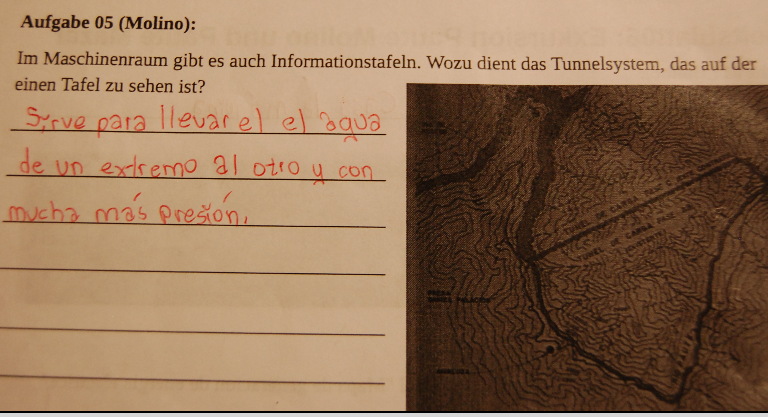 Aufgabe 05 (Molino):
Im Maschinenraum gibt es auch Informationstafeln. Wozu dient das Tunnelsystem, das auf der
einen Tafel zu sehen ist?
Sirve para llevar el el agua
de un extremo al otro y con
mucha más presión.
TUNEL DE CARGA